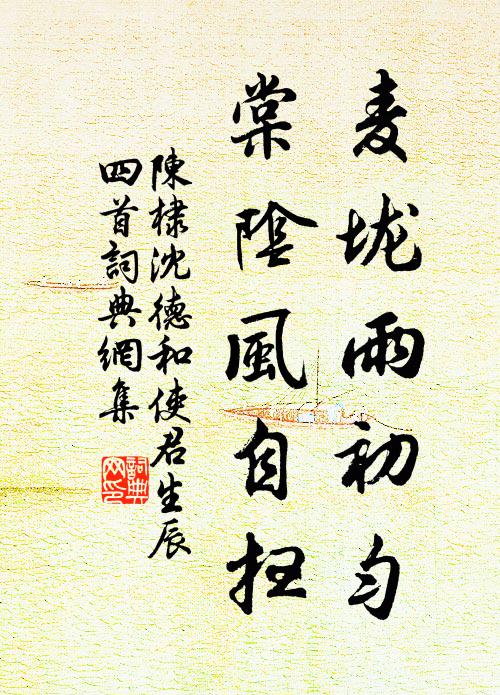 麦垅雨初匀
棠陰風自扫
陳棣沈德和使君生辰
四首詞典網集
詞典
网印